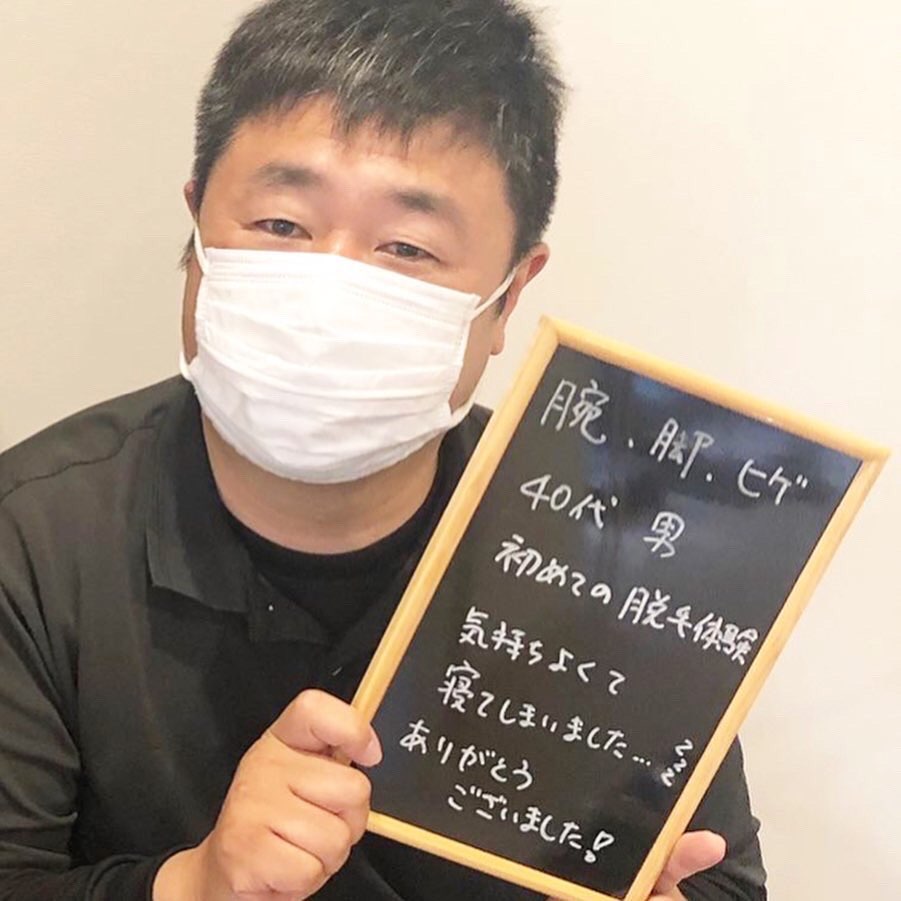 腕、脚、ヒゲ
40代 男
初めての脱毛体験
気持ちよくて
寝てしまいました… zzz
ありがとう
ございました!